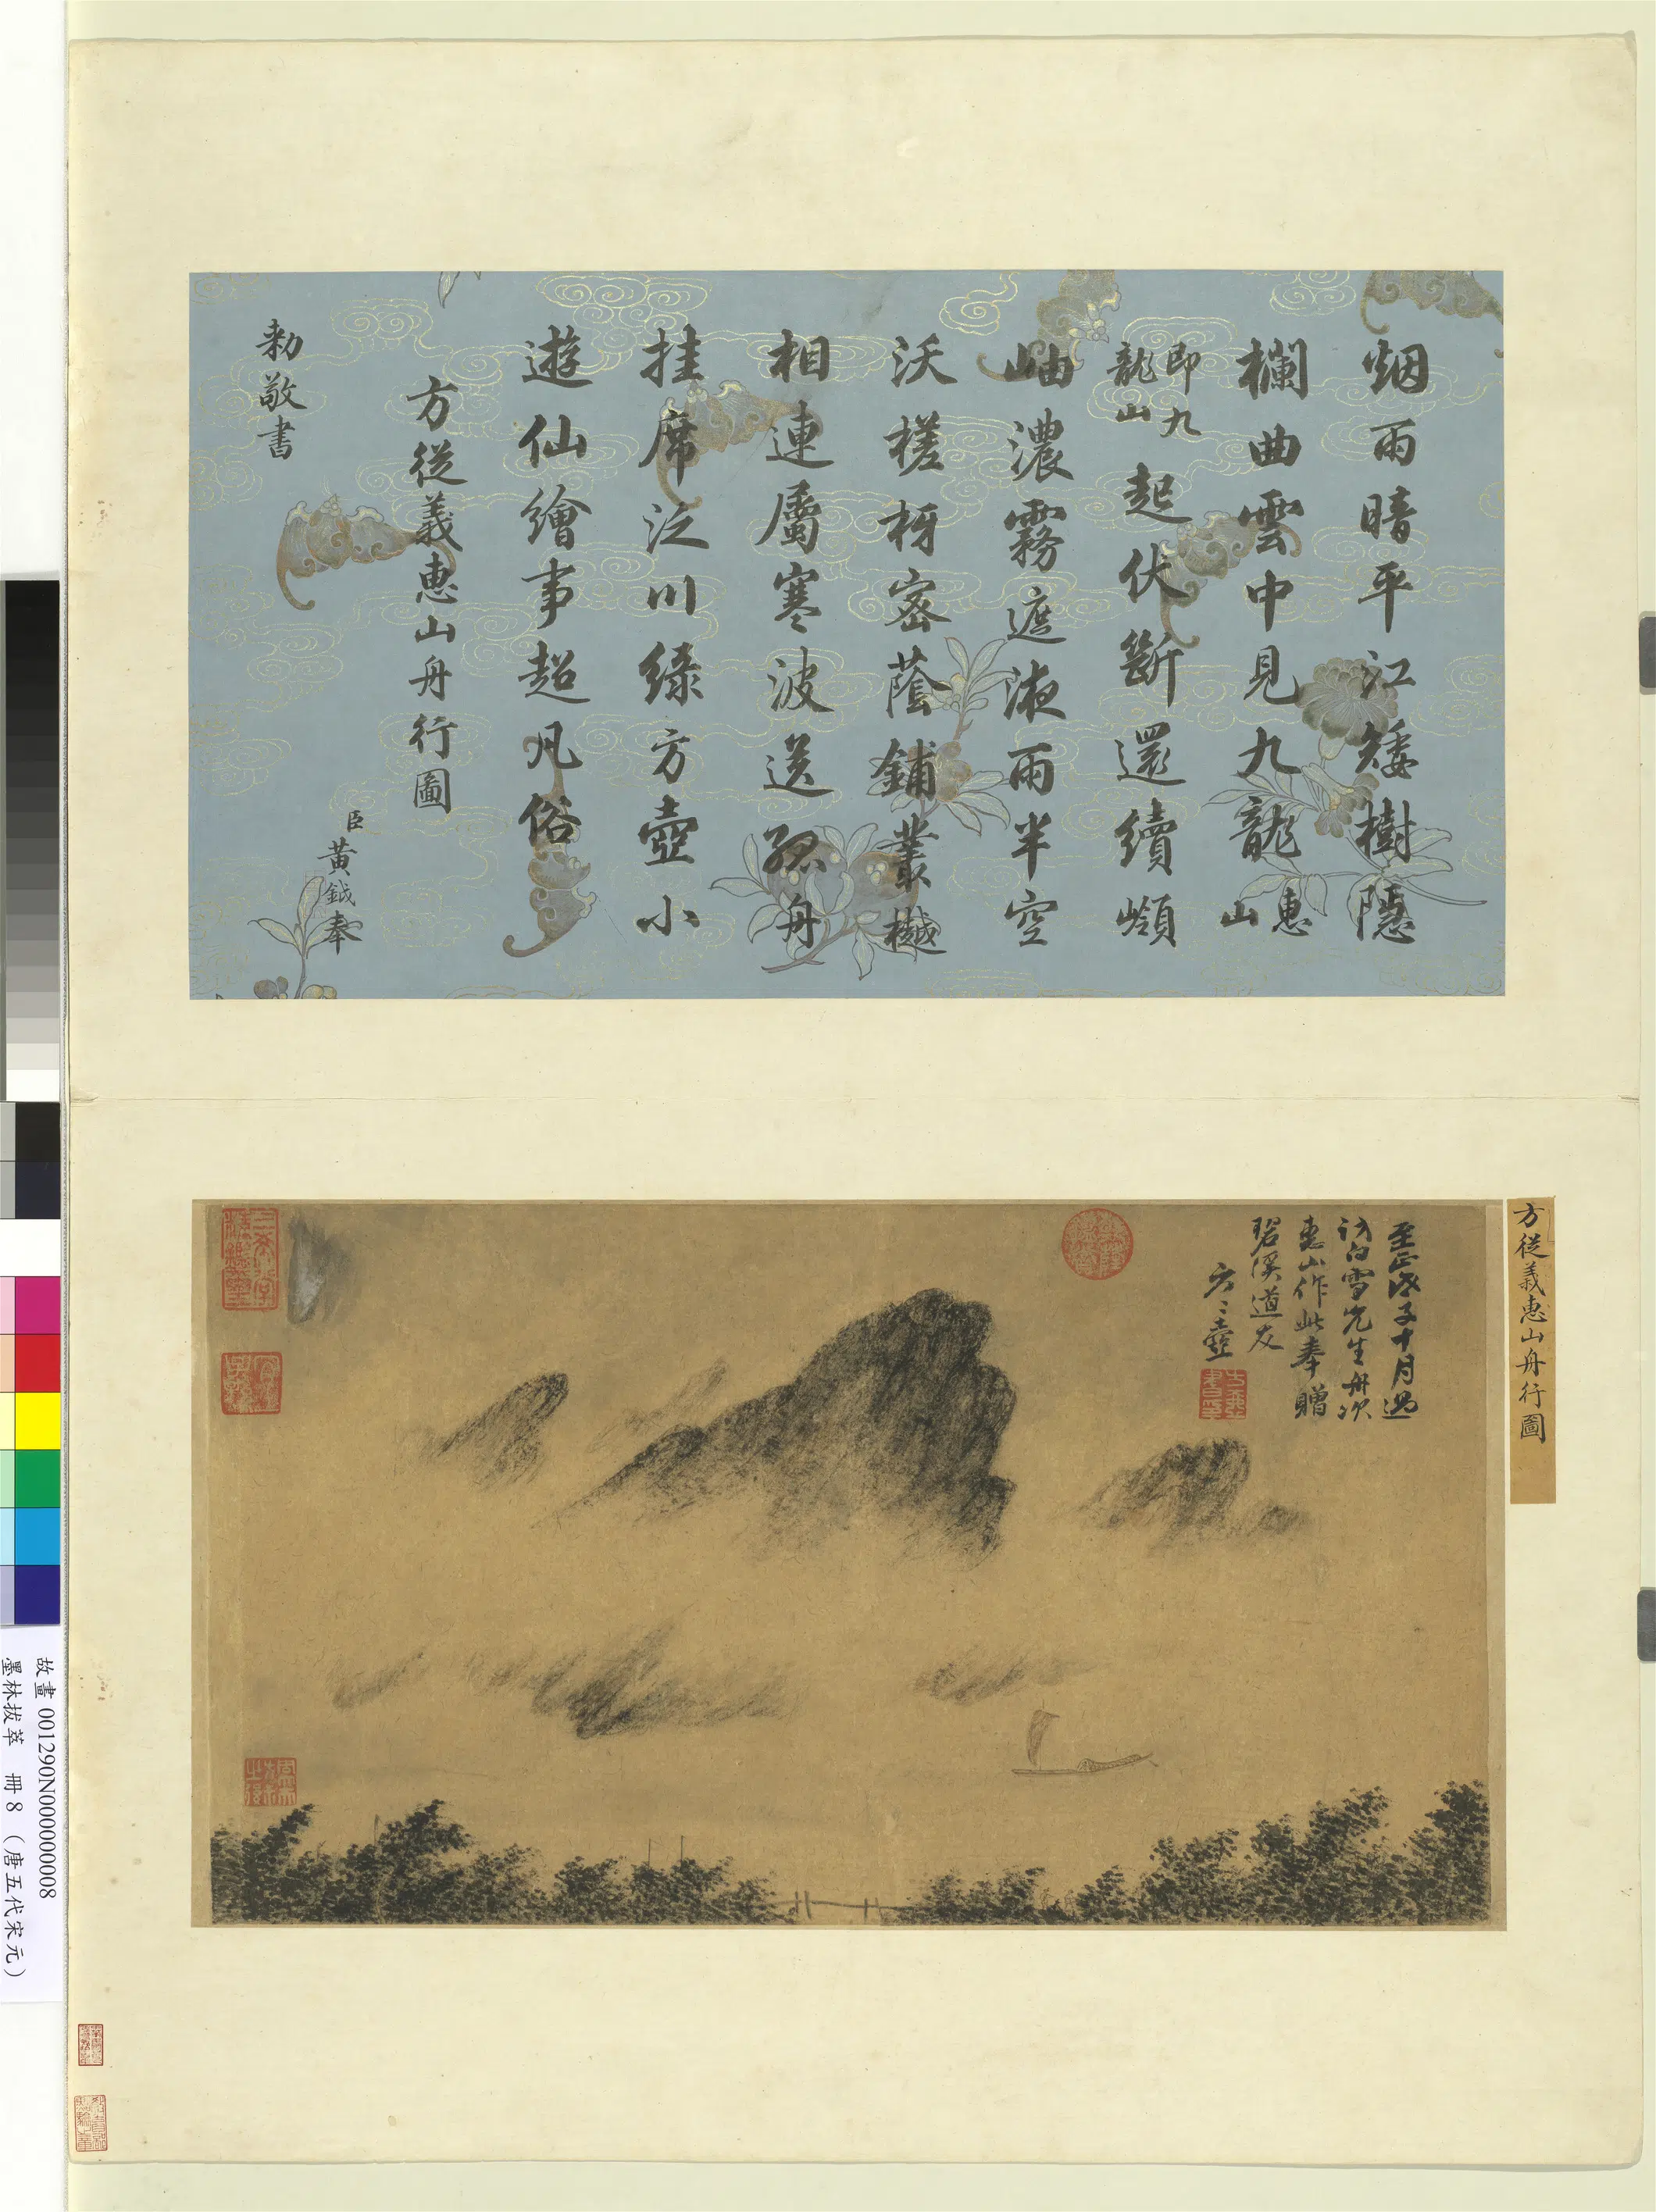 烟雨暗平江矮樹隱
欄曲雲中見九龍惠山
即九龍山起伏斷還續嶺
岫濃霧遮液雨半空
沃槎枒密蔭鋪叢樾
相連屬寒波送孤舟
挂席泛川綠方壺小
遊仙繪事超凡俗
方從義惠山舟行圖
臣黃鉞奉
勅敬書
方從義惠山舟行圖
至正庚子十月過
訪白雪先生舟次
惠山作此奉贈
碧溪道友
方方壺
故畫 001290N000000008
墨林拔萃 冊 8 (唐五代宋元)